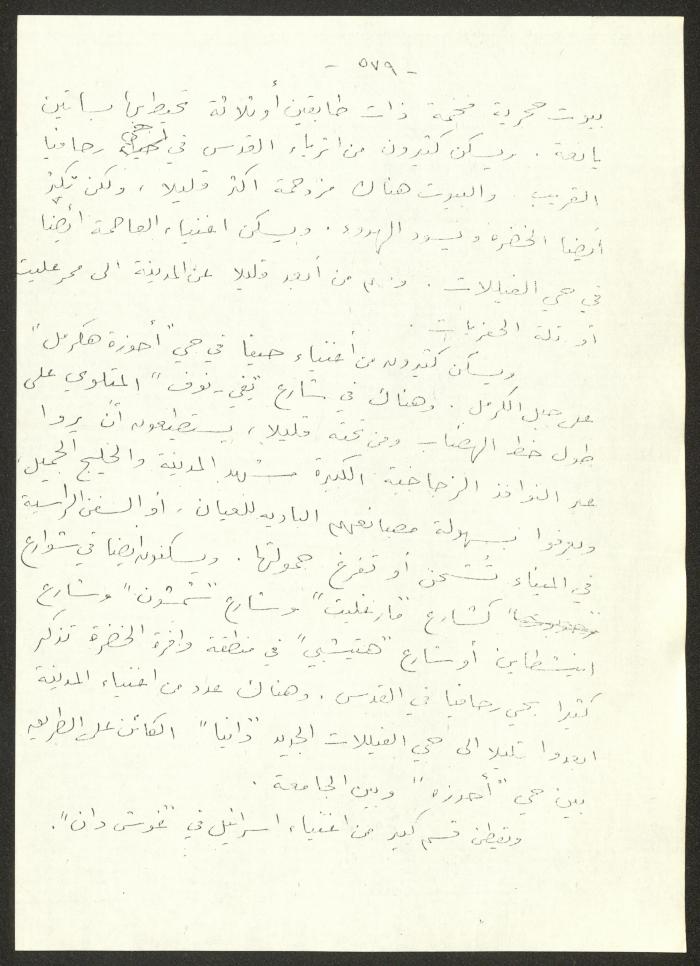 - ٥٧٩ -
بيوت حجرية فخمة ذات طابقين أو ثلاثة تحيط بها بساتين
يانعة . ويسكن كثيرون من اثرياء القدس في حي رحافيا
القريب . والبيوت هناك مزدحمة اكثر قليلا ، ولكن تكثر
أيضا الخضره ويسود الهدوء . ويسكن اغنياء العاصمة أيضا
في حي الفيللات . ومنهم من أبعد قليلا عن المدينة الى
أو تلة .
ويسكن كثيرون من أغنياء حيفا في حي "أحوزة هكرمل"
على جبل الكرمل . وهناك في شارع "يفي - نوف" المتلوي على
طول خط الهضاب ومن تحته قليلا ، يستطيعون أن يروا
عبر النوافذ الزجاجية الكبيرة مشهد المدينة والخليج الجميل ،
ويعرفوا بسهولة مصانعهم الباديه للعيان ، أو السفن الراسية
في الميناء تُشحن أو تفرغ حمولتها . ويسكنون ايضا في شوارع
كشارع "مارغليت" وشارع "شمشون" وشارع
اينشطاين أو شارع "هتيشبي" في منطقة وافرة الخضرة تذكر
كثيرا بحي رحافيا في القدس . وهناك عدد من اغنياء المدينة
ابعدوا قليلا الى حي الفيللات الجديد "دانيا" الكائن على الطريق
بين حي "أحوزه" وبين الجامعة .
ويقطن قسم كبير من اغنياء اسرائيل في "غوش دان" .